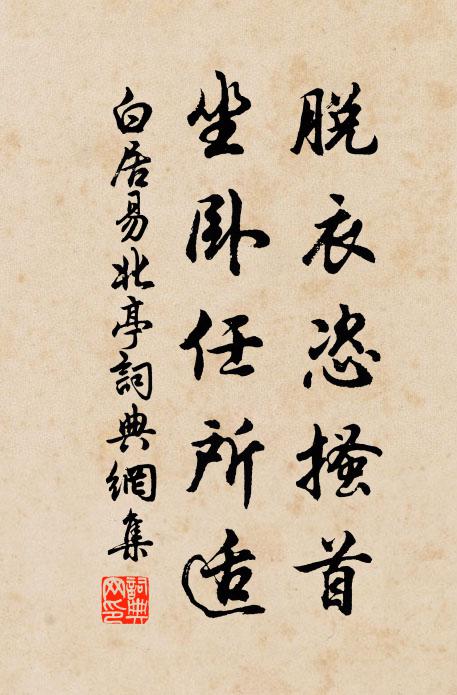 脫衣恣搔首
坐卧任所适
白居易北亭詞典網集
詞典網印